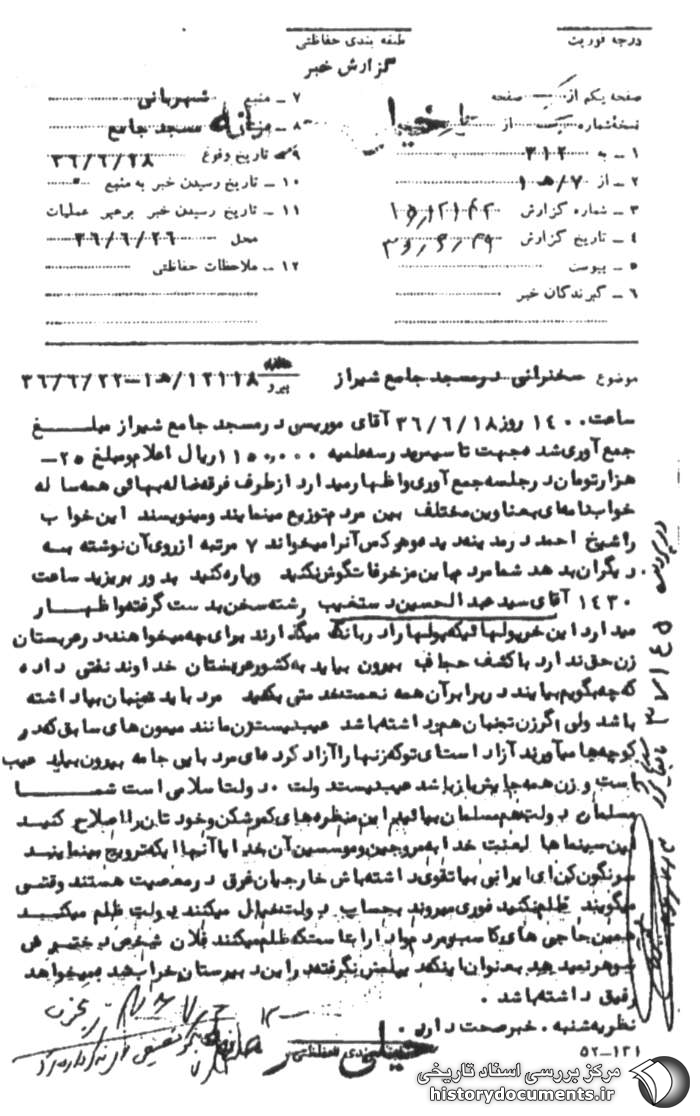 درجه فوریت
طبقه بندی حفاظتی
گزارش خبر
صفحه یکم از یک صفحه
نسخه شماره یک از
۱ ـ به ۳۱۲
۲ ـ از ۷/هـ ۱
۳ ـ شماره گزارش
۴ ـ تاریخ گزارش
۵ ـ پیوست
۶ ـ گیرندگان خبر
خیلی
۷ ـ منبع شهربانی
۸ ـ مسجد جامع
۹ ـ تاریخ وقوع ۳۶/۶/۱۸
۱۰ ـ تاریخ رسیدن خبر به منبع
۱۱ ـ تاریخ رسیدن خبر برهبر عملیات
محل ۳۶/۶/۲۶
۱۲ ـ ملاحظات حفاظتی
موضوع سخنرانی در مسجد جامع شیراز
پیرو ۱۲۱۱۸/هـ ۱ـ۳۶/۶/۲۲
ساعت ۱۴۰۰ روز ۳۶/۶/۱۸ آقای موریسی در مسجد جامع شیراز مبلغ
جمع آوری شده جهت تاسیس مدرسه علمیه ۱۱۵۰,۰۰۰ ریال اعلام و مبلغ ۲۵ـ
هزار تومان در جلسه جمع آوری و اظهار میدارد از طرف فرقه ضاله بهائی همه ساله
خواب نامه ای بعناوین مختلف بین مردم توزیع مینمایند و مینویسند این خواب
را شیخ احمد در مدینه دیده و هر کس آنرا میخواند ۷ مرتبه از روی آن نوشته به
دیگران بدهد شما مردم باین مزخرفات گوش نکنید و پاره کنید بدور بریزید ساعت
۱۴۳۰ آقای سید عبدالحسین دستغیب رشته سخن بدست گرفته و اظهار
میدارد این خر پولهائیکه پولها را در بانک میگذارند برای چه میخواهند در عربستان
زن حق ندارد با کشف حجاب بیرون بیاید به کشور عربستان خداوند نفتی داده
که چه بگویم بیایند در برابر آن همه نعمت خدمتی بکنید مرد باید تنبان بپا داشته
باشد ولی اگر زن تنبان هم نداشته باشد عیب نیست زن مانند میمون های سابق که در
کوچه ها میآورند آزاد است ای تو که زنها را آزاد کرده ای مرد با این جامه بیرون بیاید عیب
است و زن همه جایش باز باشد عیب نیست دولت ، دولت اسلامی است شما
مسلمان دولت هم مسلمان بیائید این منظره های کمرشکن و خودتان را اصلاح کنید
این سینماها لعنت خدا به مروجین و موسسین آن خدایا آنهائیکه ترویج مینمایند
سرنگون کن ای ایرانی بیا تقوی داشته باش خارجیان غرق در معصیت هستند وقتی
میگویند ظلم نکنید فوری میروند بحساب دولت خیال میکنند دولت ظلم میکند
همین حاجی های کاسب و مردم اداراست که ظلم میکنند فلان شخص دخترش
شوهر نمیدهد بعنوان اینکه دیپلمش نگرفته در این دبیرستان خراب شده میخواهد
رفیق داشته باشد .
نظریه شنبه . خبر صحت دارد .
خیلی
طبقه بندی حفاظتی
۵۲ـ۱۳۱
مرکز بررسی اسناد تاریخی
historydocuments.ir